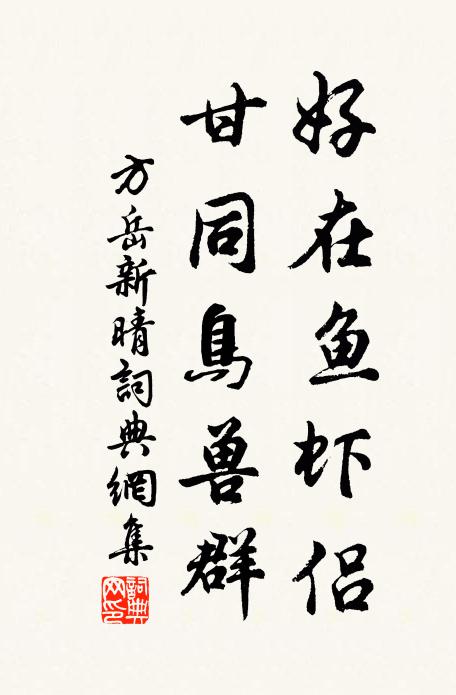 好在鱼虾侣
甘同鳥兽群
方岳新晴詞典網集
詞典网印